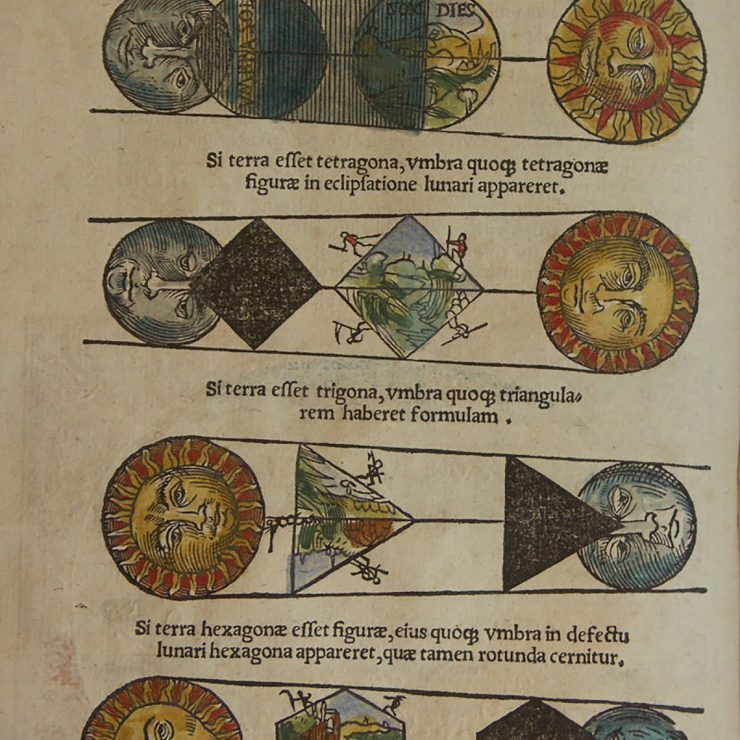 NOX DIES
Si terra eſſet tetragona, vmbra quoqꝫ tetragonæ
figuræ in eclipſatione lunari appareret.
Si terra eſſet trigona, vmbra quoqꝫ triangula⸗
rem haberet formulam .
Si terra hexagonæ eſſet figuræ, eius quoqꝫ vmbra in defectu
lunari hexagona appareret, quæ tamen rotunda cernitur.